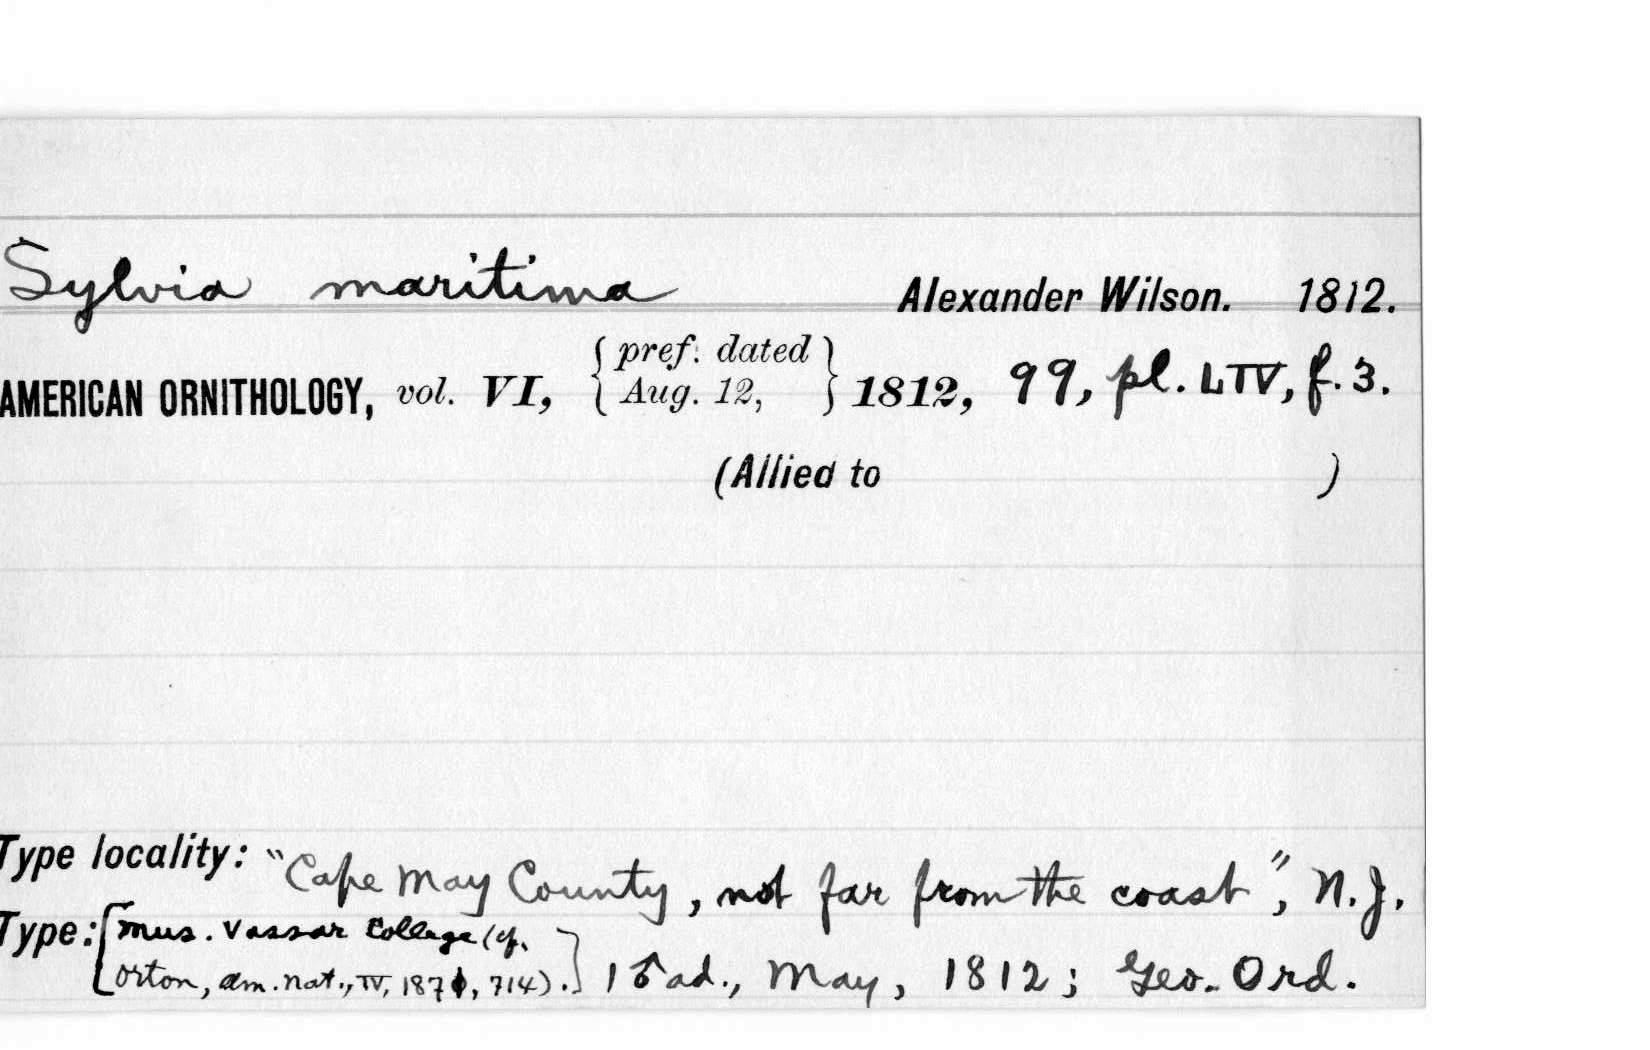 Sylvia maritima Alexander Wilson. 1812.
AMERICAN ORNITHOLOGY, vol. VI, { pref. dated Aug. 12, } 1812, 99, pl. LIV, f. 3.
(Allied to )
Type locality: "Cape May County, not far from the coast", N.J.
Type: [Mus. Vassar College (cf. Orton, Am. Nat., IV, 1871, 714).] 1 ♂ ad., May, 1812; Geo. Ord.